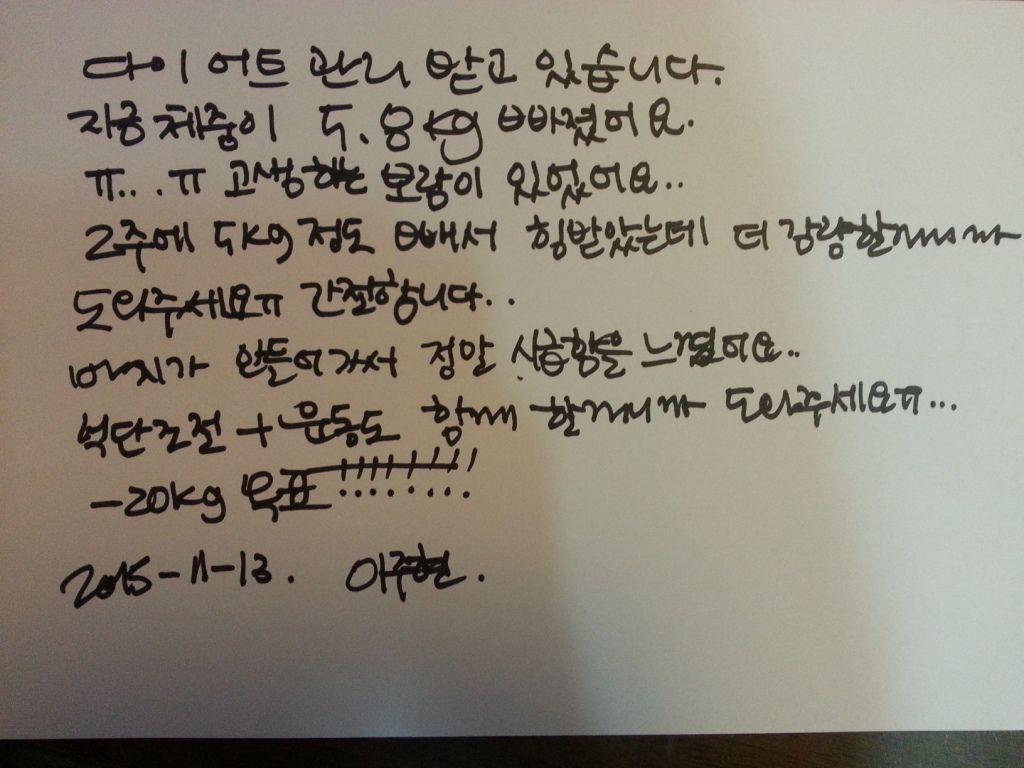 다이어트 관리 받고 있습니다.
지금 체중이 5.8kg 빠졌어요.
ㅠ...ㅠ 고생하는 보람이 있었어요..
2주에 5kg 정도 빼서 힘받았는데 더 감량할께니까
도와주세요ㅠ 간절합니다..
바지가 안들어가서 정말 시급함을 느꼈어요..
식단조절 + 운동도 함께 할께니까 도와주세요ㅠ...
-20kg 목표!!!!!!!!
2015-11-13. 이주현.